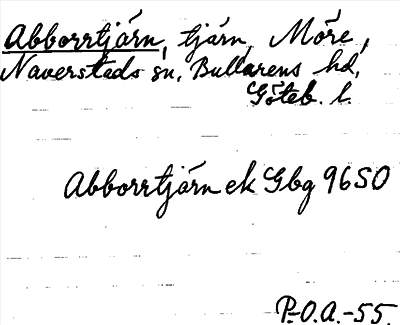 Abborrtjärn, tjärn, Möre,
Naverstads sn, Bullarens hd,
Göteb. l.
Abborrtjärn ek Gbg 96 SO
P.-O.A.-55.